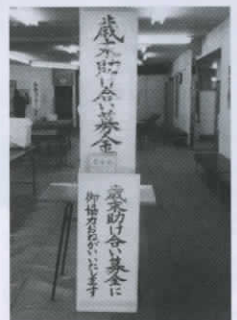 歳末助け合い募金
歳末助け合い募金に
御協力おねがいいたします